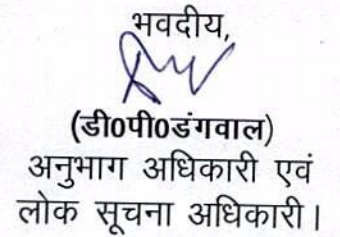 भवदीय,
(डी0पी0डंगवाल)
अनुभाग अधिकारी एवं
लोक सूचना अधिकारी।